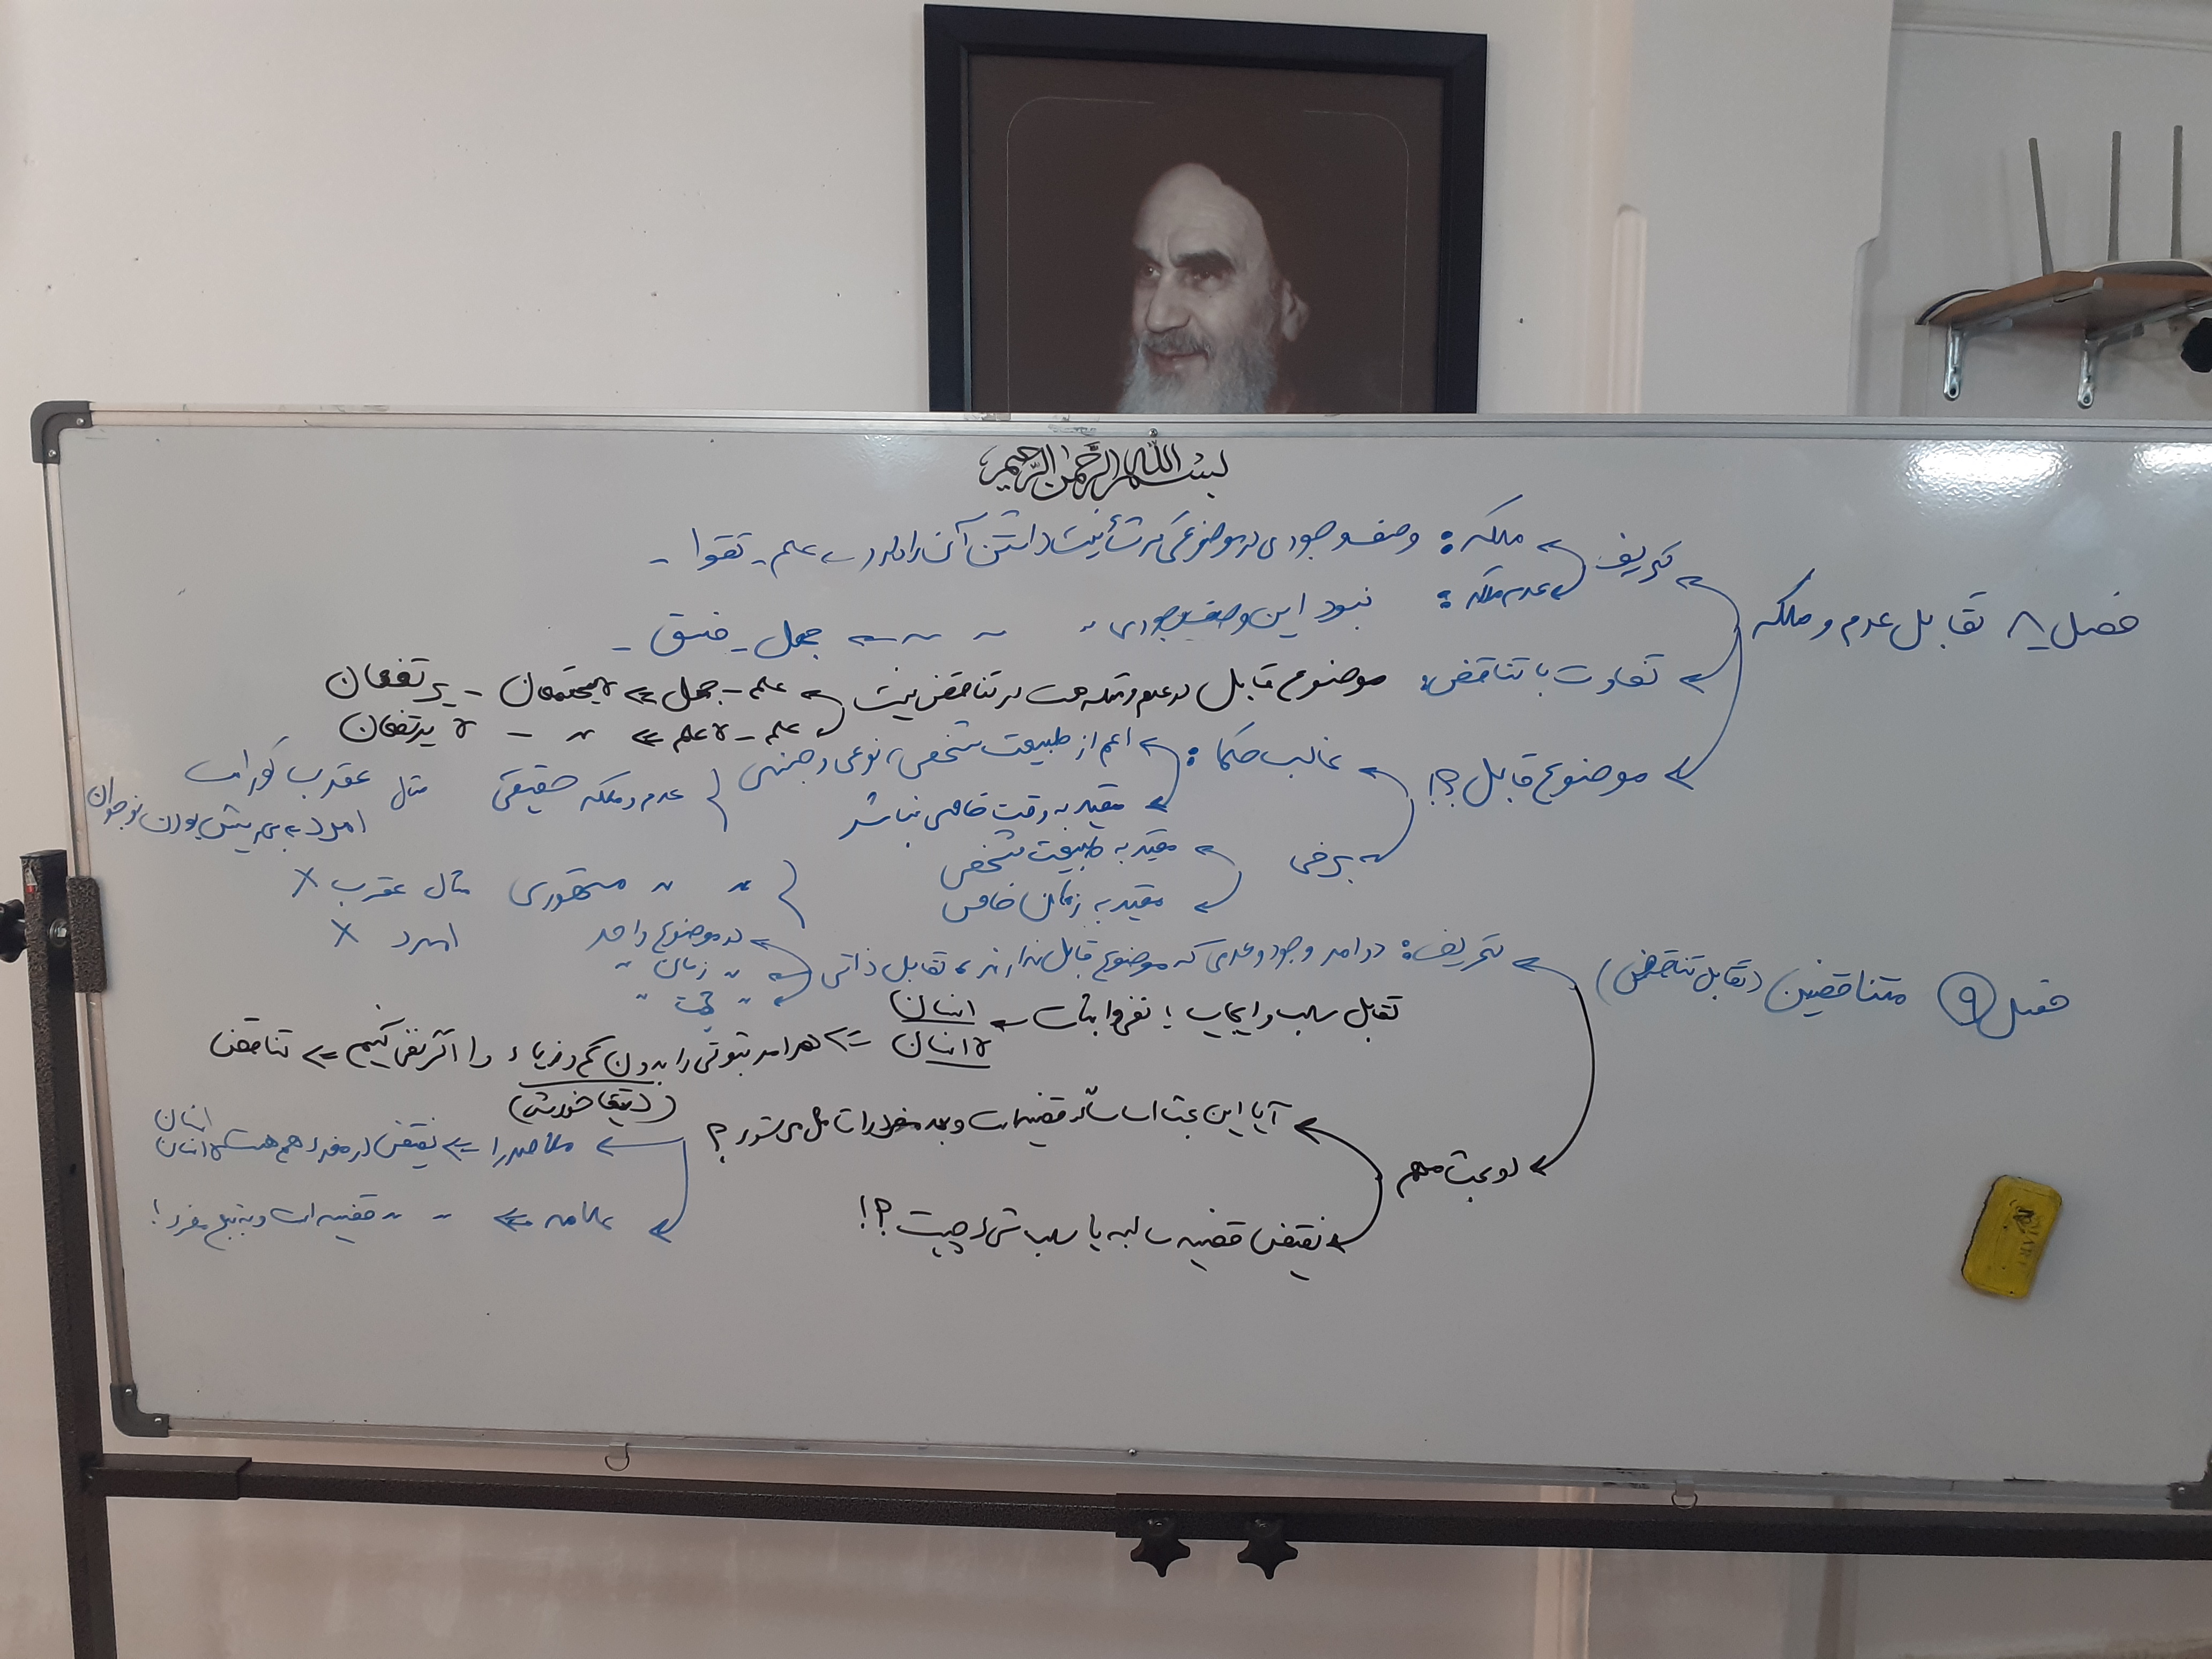 بسم الله الرحمن الرحیم
فصل ۸ تقابل عدم و ملکه
تعریف
ملکه: وصف وجودی در موضوعی که شأنیت داشتن آن را دارد ← علم - تقوا -
عدم ملکه: نبود این وصف وجودی " ~ ~ ← جهل - فسق -
تفاوت با تناقض: موضوع قابل در عدم و ملکه هست در تناقض نیست
علم - جهل ⇐ لا یجتمعان - یرتفعان
علم - لا علم ⇐ ~ - لا یرتفعان
موضوع قابل؟!
غالب حکما: اعم از طبیعت شخصی، نوعی و جنسی
مقید به وقت خاصی نباشد
عدم و ملکه حقیقی مثال عقرب کور است
امرد ← بی ریش بودن نوجوان
برخی
مقید به طبیعت شخصی
مقید به زمان خاص
" " مشهوری مثال عقرب ×
امرد ×
فصل ۹ متناقضین (تقابل تناقض)
تعریف: دو امر وجودی و عدمی که موضوع قابل ندارند، تقابل ذاتی
در موضوع واحد
" زمان "
" جهت "
تقابل سلب و ایجاب؛ نفی و اثبات ← انسان
لا انسان
⇐ هر امر ثبوتی را بدون کم و زیاد را اگر نفی کنیم ⇐ تناقض
(دقیقا خودش)
دو بحث مهم
آیا این بحث اساسا در قضیه است و بعد مفردات حل می شود؟
ملاصدرا ⇐ نقیض در مفرد هم هست انسان لا انسان
علامه ⇐ ~ ~ قضیه است و به تبع مفرد!
نقیض قضیه سالبه یا سلب شیء چیست؟!